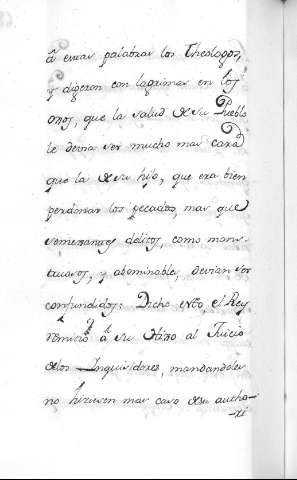 â estas palabras los Theologos,
y digeron con lagrimas en los
ojos, que la salud de su Pueblo
le devia ser mucho mas cara
que la de su hijo, que era bien
perdonar los pecados, mas que
semejantes delitos, como mons-
truosos, y abominables, devian ser
confundidos: Dicho esto, el Rey
remitió â su Hijo al Juicio
delos Inquisidores, mandandoles
no hiciesen mas caso de su autho-
-ri